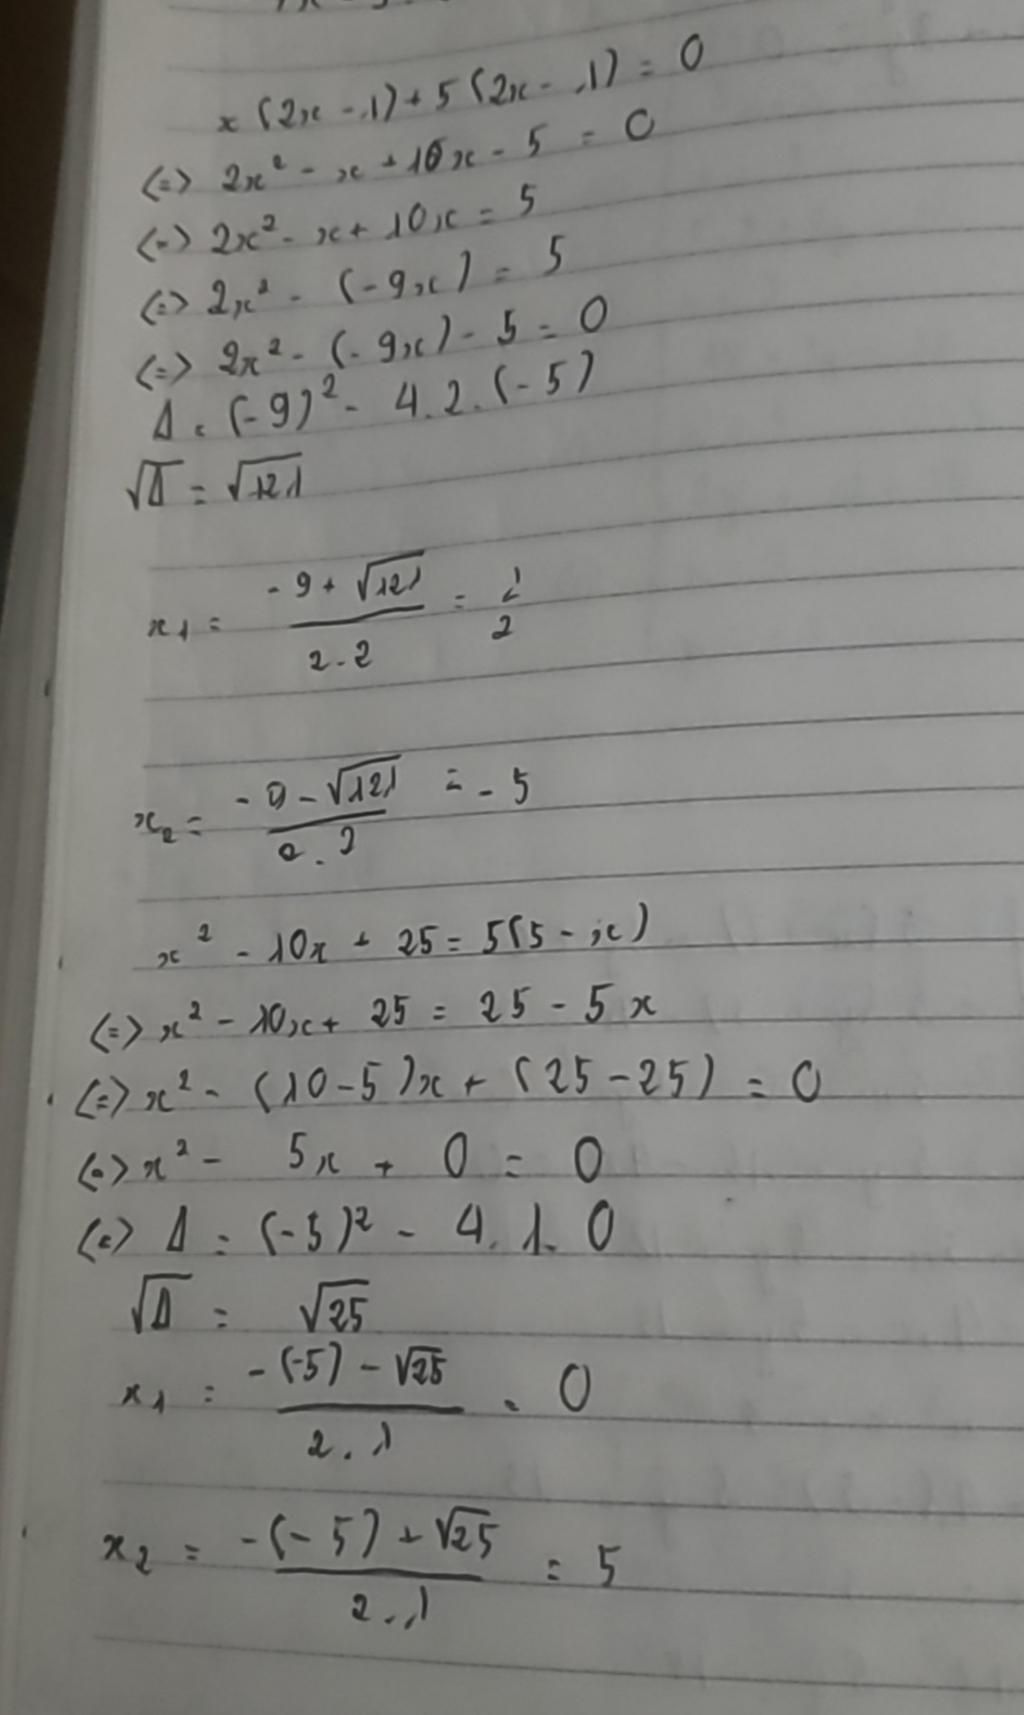 x(2x - 1) + 5(2x - 1) = 0
<=> 2x² - x + 10x - 5 = 0
<=> 2x² - x + 10x = 5
<=> 2x² - (-9x) = 5
<=> 2x² - (-9x) - 5 = 0
Δ = (-9)² - 4.2.(-5)
√Δ = √121
x₁ = (-9 + √121)/(2.2) = 1/2
x₂ = (-9 - √121)/(2.2) = -5
x² - 10x + 25 = 5(5 - x)
<=> x² - 10x + 25 = 25 - 5x
<=> x² - (10 - 5)x + (25 - 25) = 0
<=> x² - 5x + 0 = 0
<=> Δ = (-5)² - 4.1.0
√Δ = √25
x₁ = (-(-5) - √25)/(2.1) = 0
x₂ = (-(-5) + √25)/(2.1) = 5